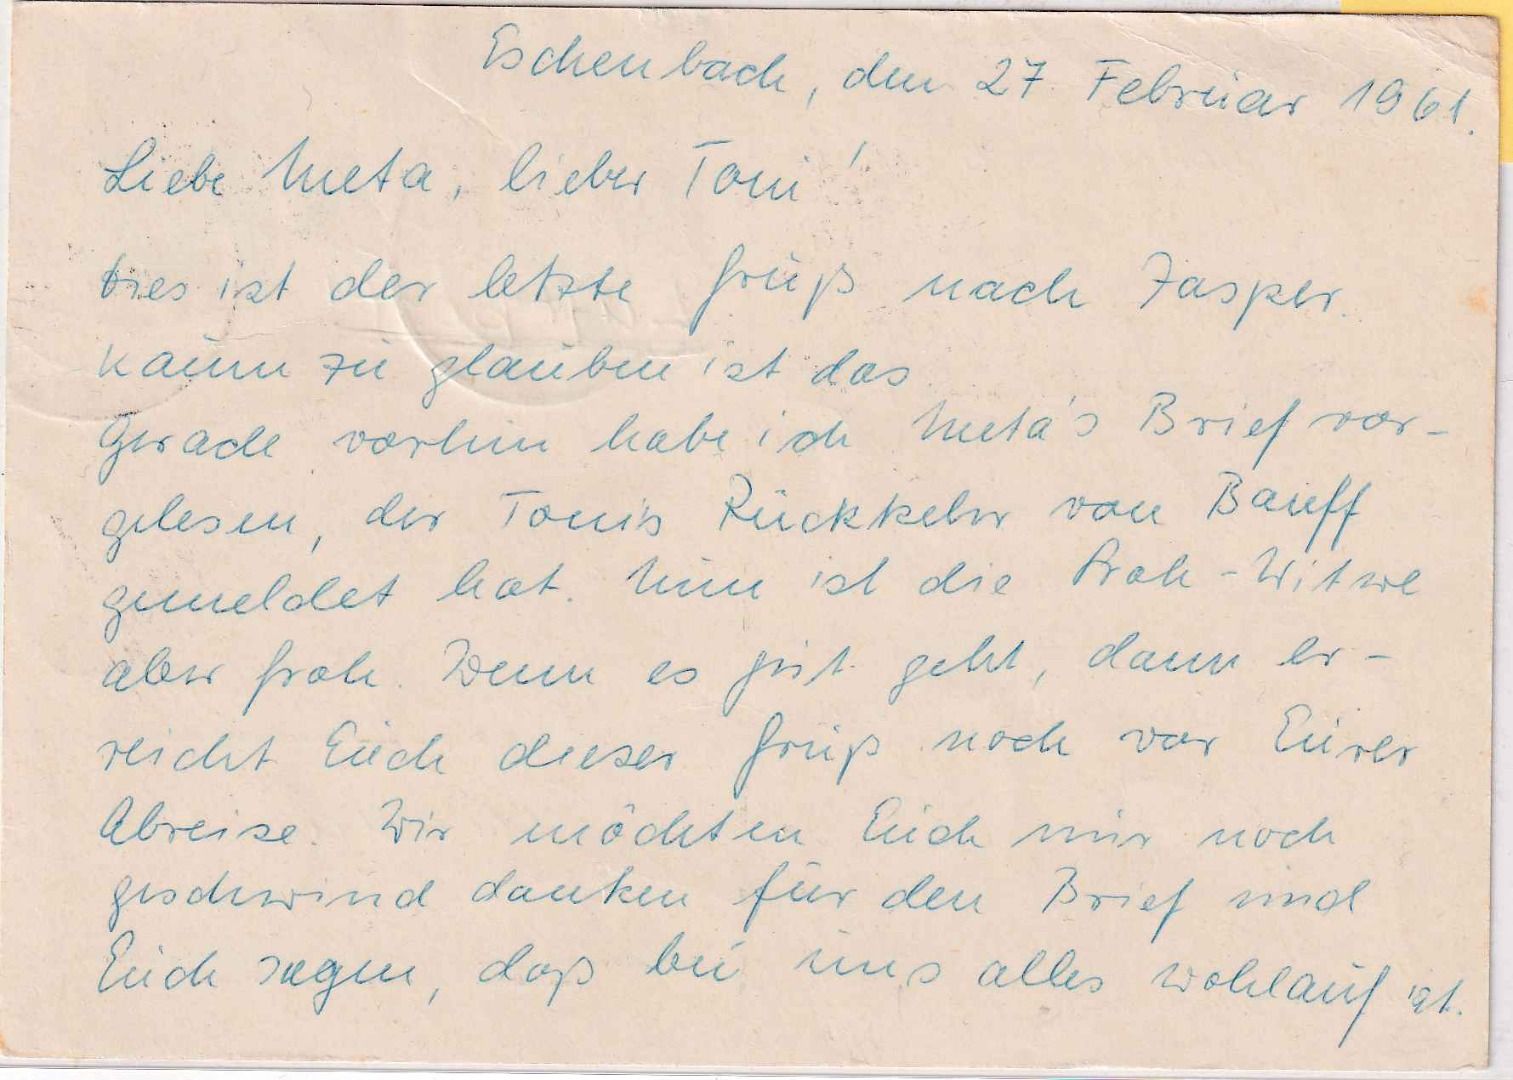 Eschenbach, den 27 Februar 1961.
Liebe Meta, lieber Toni!
Dies ist der letzte Gruß nach Jasper.
Kaum zu glauben ist das
Gerade vorhin habe ich Meta's Brief vor-
gelesen, der Toni's Rückkehr von Banff
gemeldet hat. Nun ist die Stroh-Witwe
aber froh. Wenn es gut geht, dann er-
reicht Euch dieser Gruß noch vor Eurer
Abreise. Wir möchten Euch nur noch
geschwind danken für den Brief und
Euch sagen, daß bei uns alles wohlauf ist.